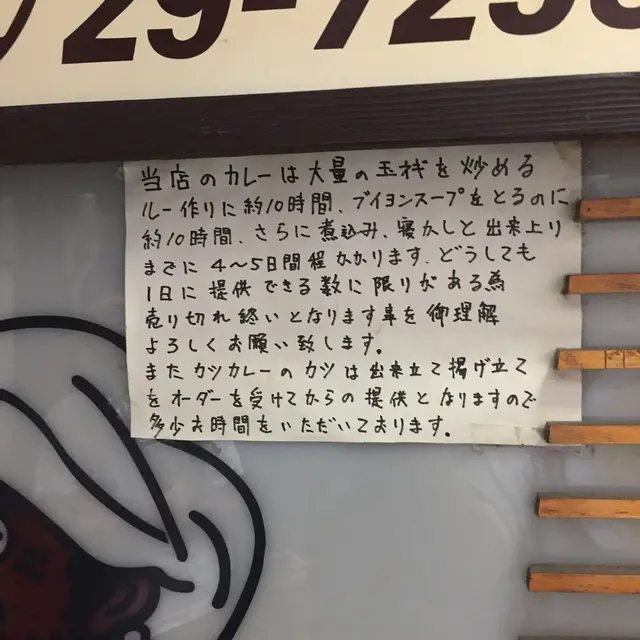 29-7256
当店のカレーは大量の玉ネギを炒める
ルー作りに約10時間、ブイヨンスープをとるのに
約10時間、さらに煮込み、寝かしと出来上り
までに4〜5日間程かかります。どうしても
1日に提供できる数に限りがある為
売り切れ終いとなります事を御理解
よろしくお願い致します。
またカツカレーのカツは出来立て揚げ立て
をオーダーを受けてからの提供となりますので
多少お時間をいただいております。